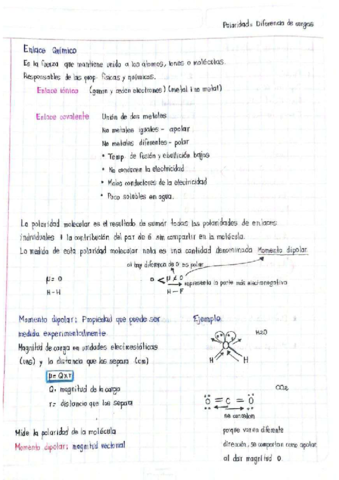 Polaridad: Diferencia de cargas
Enlace Químico
Es la fuerza que mantiene unido a los átomos, iones o moléculas.
Responsables de las prop. físicas y químicas.
Enlace iónico (ganan y ceden electrones) (metal + no metal)
Enlace covalente Unión de dos metales
No metales iguales - apolar
No metales diferentes - polar
• Temp. de fusión y ebullición bajos
• No conducen la electricidad
• Malos conductores de la electricidad
• Poco solubles en agua.
La polaridad molecular es el resultado de sumar todas las polaridades de enlaces
individuales + la contribución del par de é sin compartir en la molécula.
La medida de esta polaridad molecular neta es una cantidad denominada Momento dipolar
al hay diferencia de 0 es polar
μ = 0 0 < μ ≠ 0
representa la parte más electronegativa
H - H H - F
Momento dipolar: Propiedad que puede ser
medida experimentalmente
Ejemplo:
H2O
H H
Magnitud de carga en unidades electrostáticas
(ues) y la distancia que las separa (cm)
μ = Q × r
CO2
Q = magnitud de la carga
O = C = O
r = distancia que las separa
se cancelan
Mide la polaridad de la molécula
porque van en diferente
Momento dipolar: magnitud vectorial
dirección, se comportan como apolar
al dar magnitud 0.